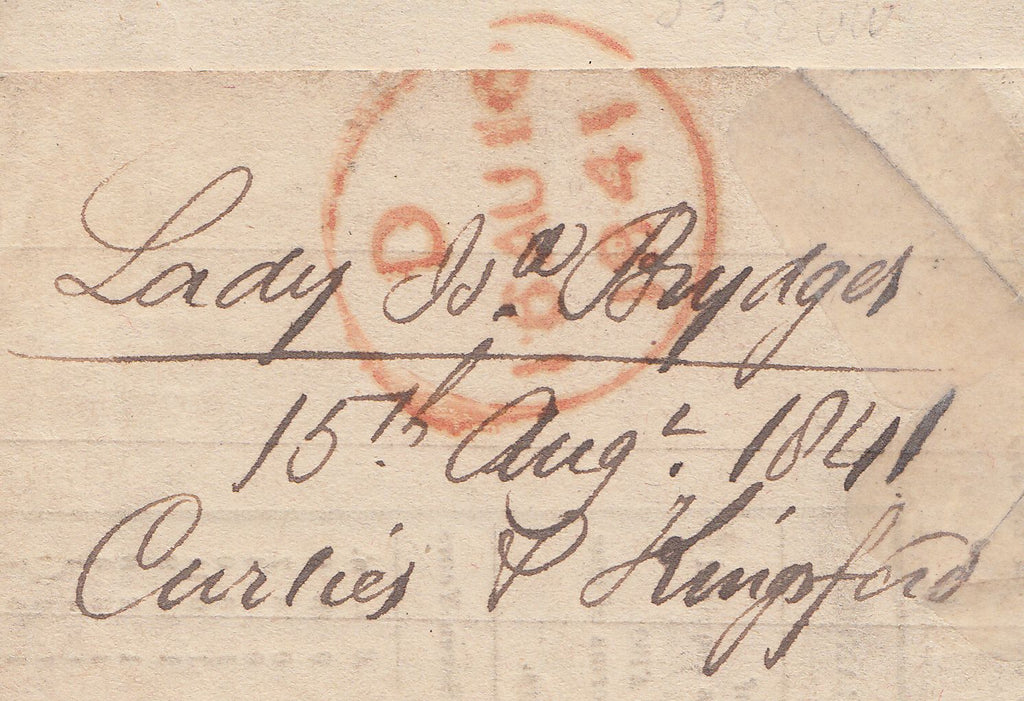 D
16 AU 16
1841
Lady Isa. Brydges
15th Augt. 1841
Curries & Kingsford